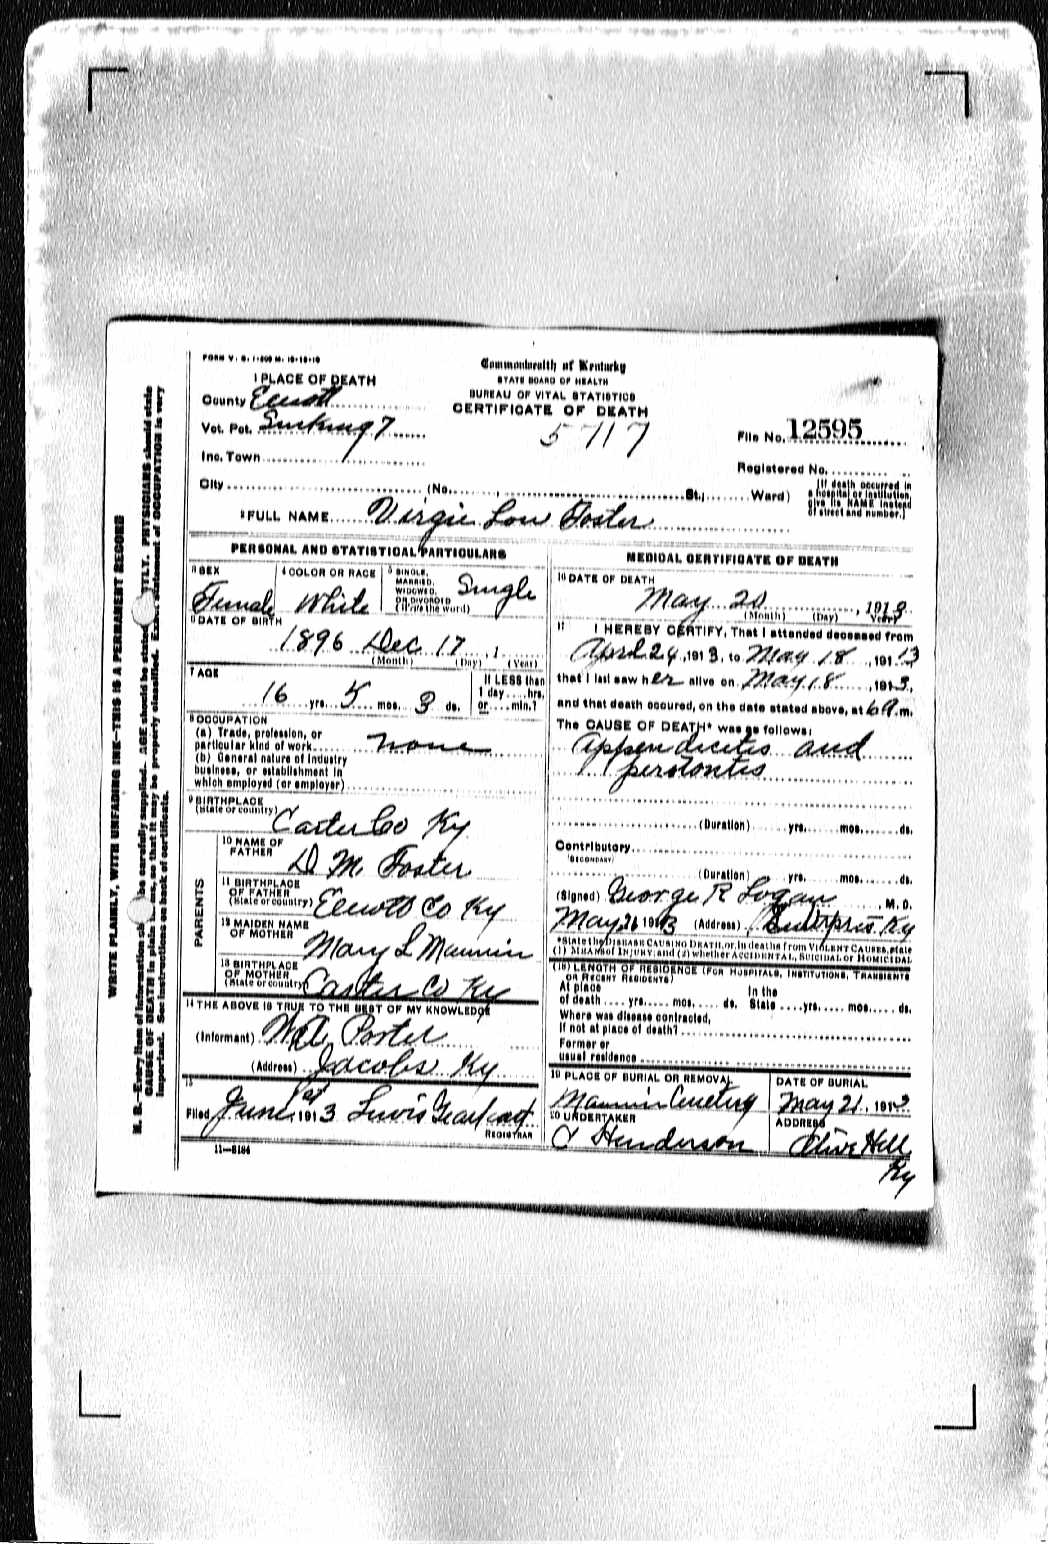 FORM V. S. 1-200 M. 10-18-10
1 PLACE OF DEATH
County Elliott
Vot. Pct. Sinking 7
Inc. Town
City (No. St.; Ward)
Commonwealth of Kentucky
STATE BOARD OF HEALTH
BUREAU OF VITAL STATISTICS
CERTIFICATE OF DEATH
5717
File No. 12595
Registered No.
[If death occurred in a hospital or institution, give its NAME instead of street and number.]
2 FULL NAME Virgie Lou Foster
PERSONAL AND STATISTICAL PARTICULARS
3 SEX Female
4 COLOR OR RACE White
5 SINGLE, MARRIED, WIDOWED, OR DIVORCED (Write the word) Single
6 DATE OF BIRTH
1896 Dec 17, 1
(Month) (Day) (Year)
7 AGE
16 yrs. 5 mos. 3 ds.
If LESS than 1 day .... hrs. or .... min.?
8 OCCUPATION
(a) Trade, profession, or particular kind of work none
(b) General nature of Industry business, or establishment in which employed (or employer)
9 BIRTHPLACE
(State or country) Carter Co Ky
PARENTS
10 NAME OF FATHER D M. Foster
11 BIRTHPLACE OF FATHER (State or country) Elliott Co Ky
12 MAIDEN NAME OF MOTHER Mary L Mannin
13 BIRTHPLACE OF MOTHER (State or country) Carter Co Ky
14 THE ABOVE IS TRUE TO THE BEST OF MY KNOWLEDGE
(Informant) Porter
(Address) Jacobs Ky
15
Filed June 1st 1913 Lewis Gearhart
REGISTRAR
11—5184
MEDICAL CERTIFICATE OF DEATH
16 DATE OF DEATH
May 20, 1913
(Month) (Day) (Year)
17 I HEREBY CERTIFY, That I attended deceased from
April 24, 1913, to May 18, 1913
that I last saw her alive on May 18, 1913,
and that death occured, on the date stated above, at 6 a.m.
The CAUSE OF DEATH* was as follows:
Appendicitis and
perotontis
(Duration) yrs. mos. ds.
Contributory
(SECONDARY)
(Duration) yrs. mos. ds.
(Signed) George R Logan, M. D.
May 21 1913 (Address) Enterprise Ky
*State the DISEASE CAUSING DEATH, or, in deaths from VIOLENT CAUSES, state
(1) MEANS of INJURY; and (2) whether ACCIDENTAL, SUICIDAL or HOMICIDAL
(18) LENGTH OF RESIDENCE (FOR HOSPITALS, INSTITUTIONS, TRANSIENTS OR RECENT RESIDENTS)
At place of death .... yrs. .... mos. .... ds. In the State .... yrs. .... mos. .... ds.
Where was disease contracted,
If not at place of death?
Former or
usual residence
19 PLACE OF BURIAL OR REMOVAL
Mannin Cemetery
DATE OF BURIAL
May 21, 1913
20 UNDERTAKER
C Henderson
ADDRESS
Olive Hill
Ky
WRITE PLAINLY, WITH UNFADING INK—THIS IS A PERMANENT RECORD
N. B.—Every item of information be carefully supplied. AGE should be stated EXACTLY. PHYSICIANS should state
CAUSE OF DEATH in plain so that it may be properly classified. Exact statement of OCCUPATION is very
important. See instructions on back of certificate.